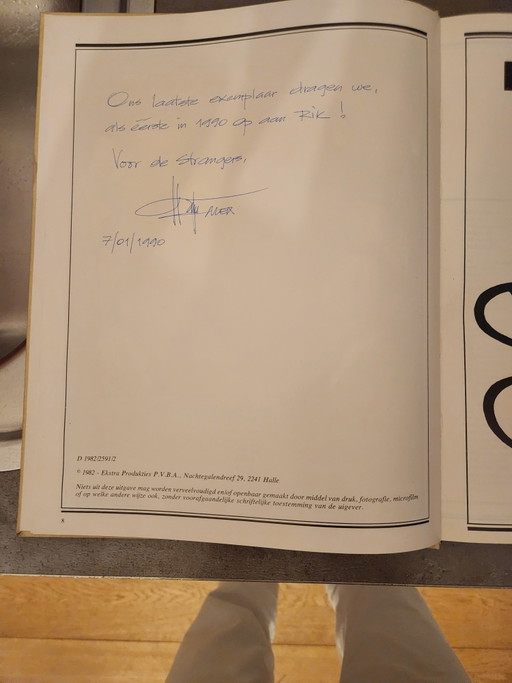 Ons laatste exemplaar dragen we,
als éérste in 1990 op aan Rik !
Voor de Strangers,
7/01/1990
D 1982/2591/2
© 1982 - Ekstra Produkties P.V.B.A., Nachtegalendreef 29, 2241 Halle
Niets uit deze uitgave mag worden verveelvoudigd en/of openbaar gemaakt door middel van druk, fotografie, microfilm
of op welke andere wijze ook, zonder voorafgaandelijke schriftelijke toestemming van de uitgever.